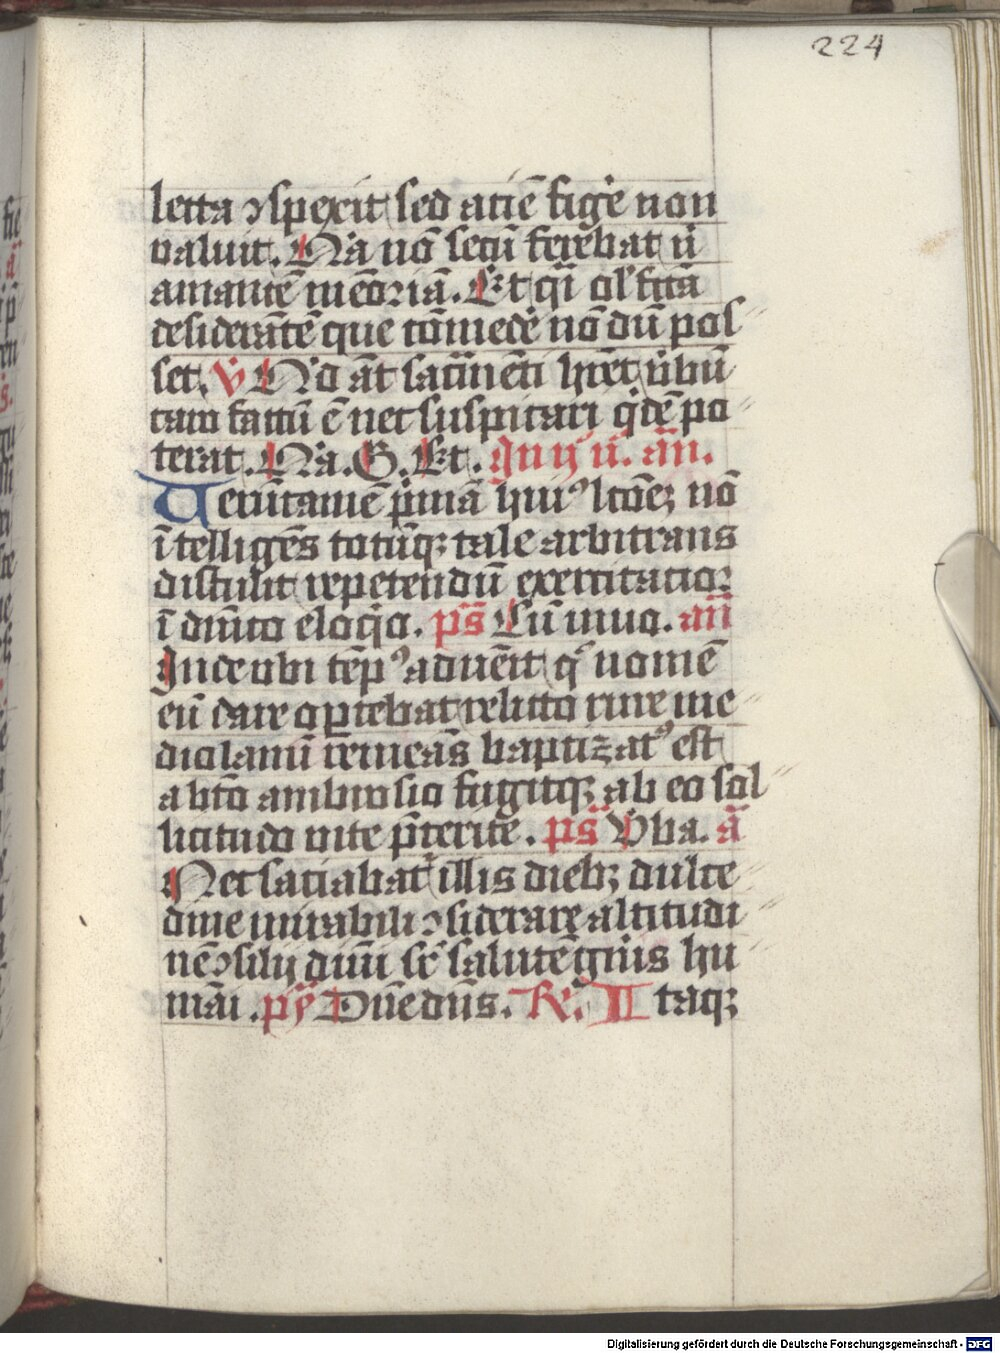 224
lecta ↄspexit sed aciē fig'e non
valuit. Nā nō secū ferebat n̄
amantē mēoriā. Et q̄i ol'fc̄ā
desiderātē que cōmedē nō dū pos
set. V Nō āt sac̄m̄ēti hr̄et v̄bū
caro factū ē nec suspicari q̄dē po
terat. Nā. G. Et. In ij n̄. añ.
Verūtamē p̄mā huiꝰ lc̄ōeꝫ nō
ītelligēs totūqꝫ tale arbitrans
distulit repetendū exercitatior
ī dn̄ico eloq̄o. ps̄ Cū īuo. añ
Inde ubi tēpꝰ advēit qꝰ nomē
eū dare opꝛtebat relicto rure me
diolanū remeās baptizatꝰ est
a bt̄o ambrosio fugitqꝫ ab eo sol
licitudo vite p̄terite. ps̄ Vba. ā
Nec saciabat' illis diebꝫ dulce
dine mirabili ↄsiderare altitudi
nē ↄsilij divī sr̄ salutē gn̄is hu
māi. ps̄ Dn̄e dn̄s. Re. Itaqꝫ
Digitalisierung gefördert durch die Deutsche Forschungsgemeinschaft - DFG